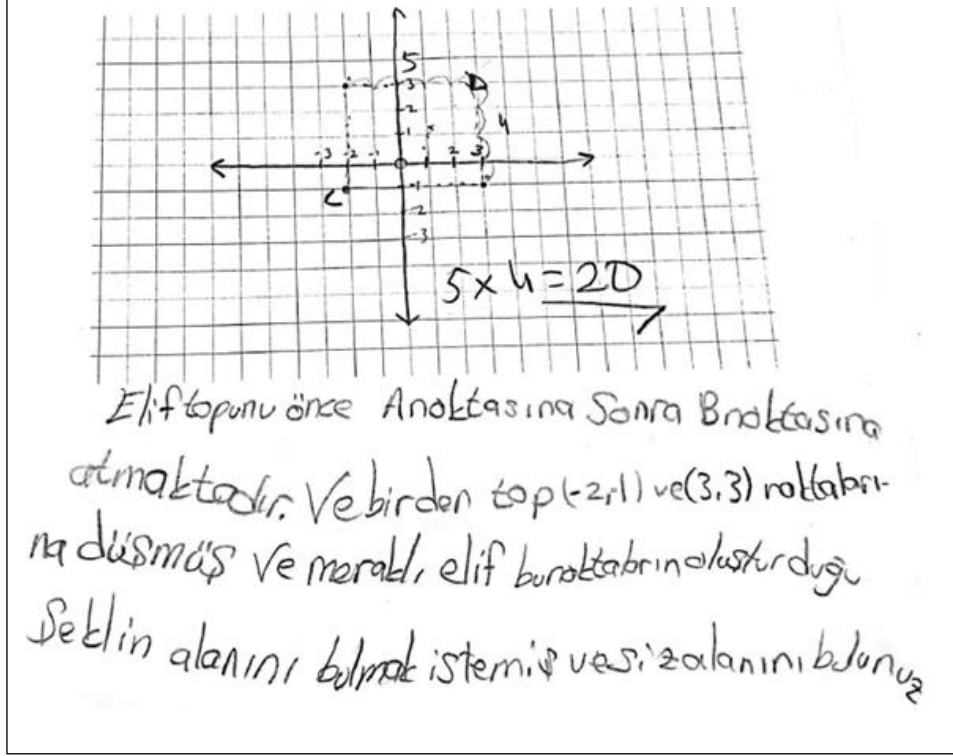 5
3 D
2
1
4
-3 -2 -1 1 2 3
C
-1
-2
-3
5 x 4 = 20
Elif topunu önce A noktasına Sonra B noktasına
atmaktadır. Ve birden top (-2,-1) ve (3,3) noktaları-
na düşmüş Ve meraklı elif bu noktaların oluşturduğu
Şeklin alanını bulmak istemiş ve siz alanını bulunuz